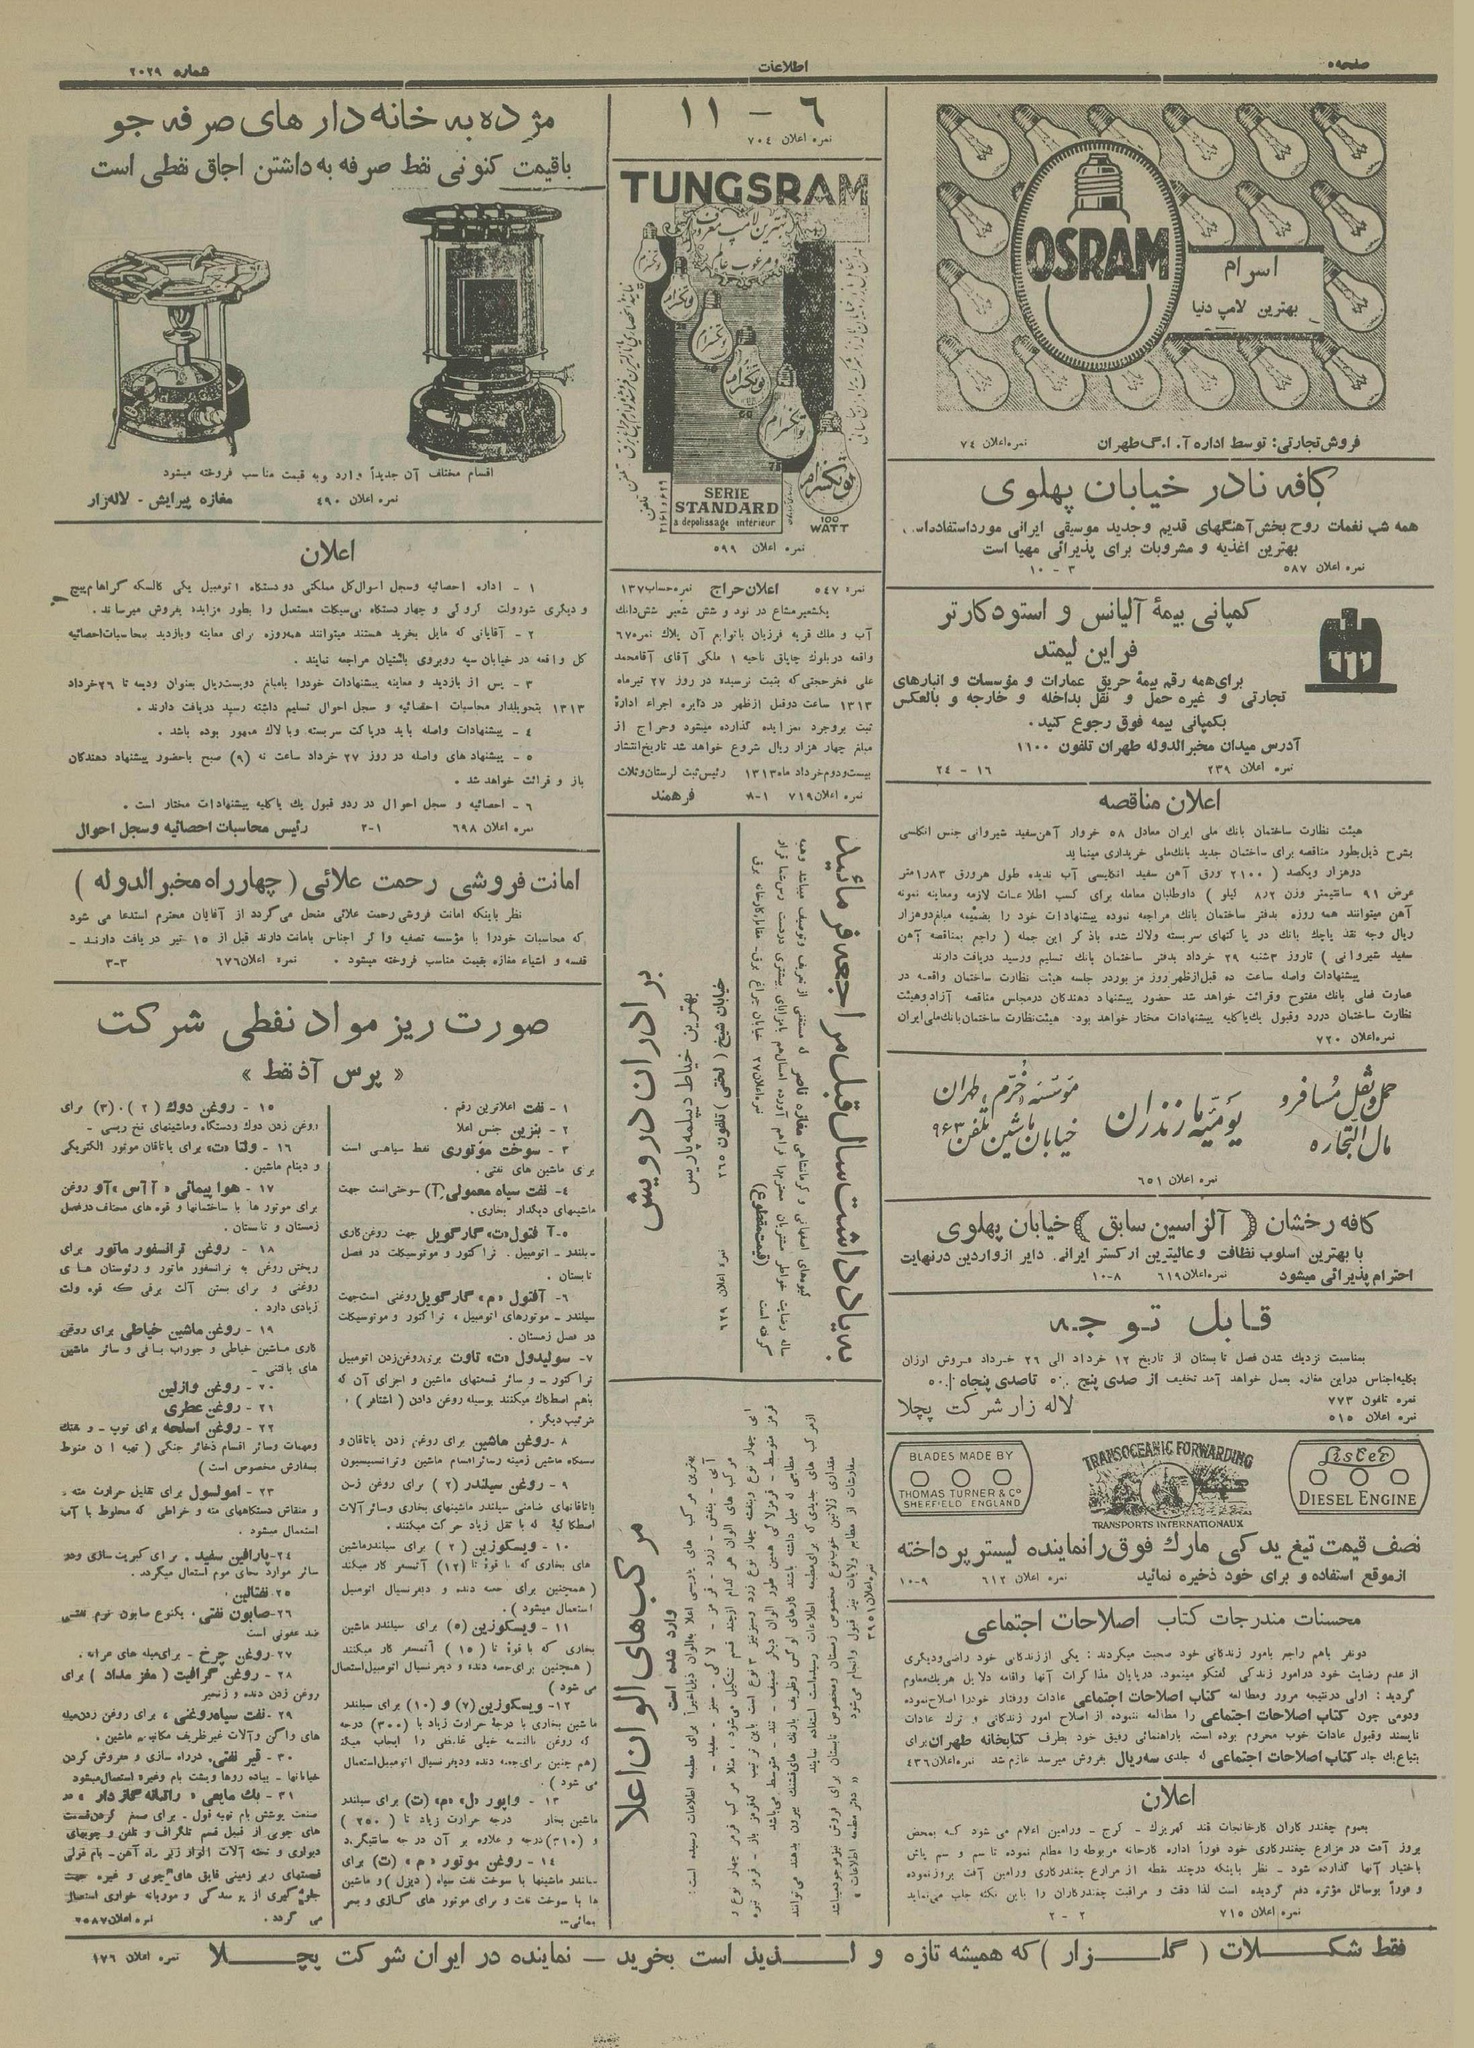 صفحه ۵
اطلاعات
شماره ۲۰۲۹
OSRAM
اسرام
بهترین لامپ دنیا
فروش تجارتی: توسط اداره آ. ا. گ طهران
نمره اعلان ۷۴
کافه نادر خیابان پهلوی
همه شب نغمات روح بخش آهنگهای قدیم و جدید موسیقی ایرانی مورد استفاده است
بهترین اغذیه و مشروبات برای پذیرائی مهیا است
نمره اعلان ۵۸۷
۳ - ۱۰
کمپانی بیمهٔ آلیانس و استودکارتر
فراین لیمتد
برای همه رقم بیمهٔ حریق عمارات و مؤسسات و انبارهای
تجارتی و غیره حمل و نقل بداخله و خارجه و بالعکس
بکمپانی بیمه فوق رجوع کنید.
آدرس میدان مخبرالدوله طهران تلفون ۱۱۰۰
نمره اعلان ۲۳۹
۱۶ - ۲۴
اعلان مناقصه
هیئت نظارت ساختمان بانک ملی ایران معادل ۵۸ خروار آهن سفید شیروانی جنس انگلسی
بشرح ذیل بطور مناقصه برای ساختمان جدید بانک ملی خریداری مینماید
دوهزار ویکصد ( ۲۱۰۰ ورق آهن سفید انگلیسی آب ندیده طول هر ورق ۱٫۸۳ متر
عرض ۹۱ سانتیمتر وزن ۸٫۲ کیلو ) داوطلبان معامله برای کسب اطلاعات لازمه ومعاینه نمونه
آهن میتوانند همه روزه بدفتر ساختمان بانک مراجعه نموده پیشنهادات خود را بضمیمه مبلغ دوهزار
ریال وجه نقد یاچک بانک در پاکتهای سربسته ولاک شده باذکر این جمله ( راجع بمناقصه آهن
سفید شیروانی ) تاروز ۳شنبه ۲۹ خرداد بدفتر ساختمان بانک تسلیم ورسید دریافت دارند
پیشنهادات واصله ساعت ده قبل ازظهر روز مزبور در جلسه هیئت نظارت ساختمان واقعه در
عمارت فعلی بانک مفتوح وقرائت خواهد شد حضور پیشنهاد دهندگان درمجلس مناقصه آزاد وهیئت
نظارت ساختمان دررد وقبول یک یا کلیه پیشنهادات مختار خواهد بود. هیئت نظارت ساختمان بانک ملی ایران
نمره اعلان ۷۲۰
حمل و نقل مسافر و
مال التجاره
یومیّه مازندران
مؤسّسه خرّم، طهران
خیابان ماشین تلفن ۹۶۳
نمره اعلان ۶۵۱
کافه رخشان ( آلزاسین سابق ) خیابان پهلوی
با بهترین اسلوب نظافت و عالیترین ارکستر ایرانی دایر از واردین در نهایت
احترام پذیرائی میشود
نمره اعلان ۶۱۹
۸-۱۰
قابل توجه
بمناسبت نزدیک شدن فصل تابستان از تاریخ ۱۲ خرداد الی ۲۶ خرداد فروش ارزان
بکلیه اجناس دراین مغازه بعمل خواهد آمد تخفیف از صدی پنج ۵٪ تاصدی پنجاه ۵۰٪
نمره تلفون ۷۷۳
نمره اعلان ۵۱۵
لاله زار شرکت پچلا
BLADES MADE BY
THOMAS TURNER & Co
SHEFFIELD ENGLAND
TRANSOCEANIC FORWARDING
TRANSPORTS INTERNATIONAUX
Lister
DIESEL ENGINE
نصف قیمت تیغ یدکی مارک فوق رانماینده لیستر پرداخته
ازموقع استفاده و برای خود ذخیره نمائید
نمره اعلان ۶۱۲
۹-۱۰
محسنات مندرجات کتاب اصلاحات اجتماعی
دونفر باهم راجع بامور زندگانی خود صحبت میکردند : یکی اززندگانی خود راضی ودیگری
از عدم رضایت خود درامور زندگی گفتگو مینمود. درپایان مذاکرات آنها واقامه دلایل هریک معلوم
گردید : اولی درنتیجه مرور ومطالعه کتاب اصلاحات اجتماعی عادات ورفتار خودرا اصلاح نموده
ودومی چون کتاب اصلاحات اجتماعی را مطالعه ننموده از اصلاح امور زندگانی و ترک عادات
ناپسند وقبول عادات خوب محروم بوده است. باراهنمائی رفیق خود بطرف کتابخانه طهران برای
بتیاع یک جلد کتاب اصلاحات اجتماعی که جلدی سه ریال بفروش میرسد عازم شد نمره اعلان ۴۳۶
اعلان
بعموم چغندرکاران کارخانجات قند کهریزک - کرج - ورامین اعلام می شود که بمحض
بروز آفت در مزارع چغندرکاری خود فوراً اداره کارخانه مربوطه را مطلع نموده تا سم و سم پاش
باختیار آنها گذارده شود - نظر باینکه درچند نقطه از مزارع چغندرکاری ورامین آفت بروز نموده
و فوراً بوسائل مؤثره دفع گردیده است لذا دقت و مراقبت چغندرکاران را باین نکته جلب می نماید
نمره اعلان ۷۱۵
۲ - ۲
۶ - ۱۱
نمره اعلان ۷۰۴
TUNGSRAM
بهترین لامپ معروف
و مرغوب عالم
تونگسرام
SERIE
STANDARD
à dépolissage intérieur
100
WATT
نمره اعلان ۵۹۹
نمره ۵۴۷
اعلان حراج
نمره حساب ۱۳۷
یکشعیر مشاع در نود و شش شعیر شش دانک
آب و ملک قریه فرزیان باتوابع آن پلاک نمره ۶۷
واقعه در بلوک چاپلق ناحیه ۱ ملکی آقای آقامحمد
علی فخرحجتی که بثبت نرسیده در روز ۲۷ تیرماه
۱۳۱۳ ساعت دوقبل ازظهر در دایره اجراء ادارهٔ
ثبت بروجرد بمزایده گذارده میشود وحراج از
مبلغ چهار هزار ریال شروع خواهد شد تاریخ انتشار
بیست ودوم خرداد ماه ۱۳۱۳ رئیس ثبت لرستان وثلاث
نمره اعلان ۷۱۹
۱-۸
فرهمند
به یادداشت سال قبل مراجعه فرمائید
گیوه های اصفهانی و کرمانشاهی مغازه ناصر که مستغنی از تعریف وتوصیف میباشد وهمه
ساله رضایت خاطر مشتریان محترم را فراهم آورده امسال هم بامزایای بیشتری دردست رس شما قرار
گرفته است
(قیمت مقطوع)
نمره اعلان ۲۷ خیابان چراغ برق - مقابل کارخانه برق
برادران درویش
بهترین خیاط دیپلمه پاریس
خیابان شیخ ( لختی ) تلفون ۲۶۵
نمره اعلان ۶۲۹
مرکب های الوان اعلا
وارد شده است
بهترین مرکب های پارسی اعلا بالوان ذیل اخیراً برای مطبعه اطلاعات رسیده است :
آبی - بنفش - زرد - قرمز - لاکی - سبز - سفید -
مرکب های الوان هر کدام ازچند قسم تشکیل می شود ، مثلا مرکب قرمز چهار نوع و
آبی چهار نوع وبنفش چهار نوع زرد وسبز نیز ۳ نوع است باین ترتیب که قرمز باز - قرمز تیره
قرمز متوسط - قرمز لاکی همین طور الوان دیگر ضعیف - تند - متوسط می باشد
مطابعی که میل داشته باشند کارهای لوکس وظریف بارنک های قشنک بیرون بدهند می توانند
ازمرکب های جدیدی که برای مطبعه اطلاعات رسیده است استفاده نمایند
مقداری ژلاتین خوب نوع مخصوص زمستان ومخصوص تابستان برای فروش نیز موجود میباشد
سفارشات از مطابع ولایات نیز قبول وانجام می شود
« دفتر مطبعه اطلاعات »
نمره اعلان ۳۹۵۱
مژده به خانه دار های صرفه جو
باقیمت کنونی نفط صرفه به داشتن اجاق نفطی است
اقسام مختلف آن جدیداً وارد وبه قیمت مناسب فروخته میشود
نمره اعلان ۴۹۰
مغازه پیرایش - لاله زار
اعلان
۱ - اداره احصائیه وسجل احوال کل مملکتی دو دستگاه اتومبیل یکی کالسکه گراهام پیچ
و دیگری شورولت کروکی و چهار دستگاه بی سیکلت مستعمل را بطور مزایده بفروش میرساند.
۲ - آقایانی که مایل بخرید هستند میتوانند همه روزه برای معاینه وبازدید بمحاسبات احصائیه
کل واقعه در خیابان سپه روبروی باشتیان مراجعه نمایند .
۳ - پس از بازدید و معاینه پیشنهادات خودرا بامبلغ دویست ریال بعنوان ودیعه تا ۲۶ خرداد
۱۳۱۳ بتحویلدار محاسبات احصائیه و سجل احوال تسلیم داشته رسید دریافت دارند .
۴ - پیشنهادات واصله باید درپاکت سربسته وبالاک ممهور بوده باشد .
۵ - پیشنهاد های واصله در روز ۲۷ خرداد ساعت نه (۹) صبح باحضور پیشنهاد دهندگان
باز و قرائت خواهد شد .
۶ - احصائیه و سجل احوال در ردو قبول یک یا کلیه پیشنهادات مختار است .
نمره اعلان ۶۹۸
۱-۲
رئیس محاسبات احصائیه وسجل احوال
امانت فروشی رحمت علائی ( چهارراه مخبرالدوله )
نظر باینکه امانت فروشی رحمت علائی منحل می گردد از آقایان محترم استدعا می شود
که محاسبات خودرا با مؤسسه تصفیه واگر اجناس بامانت دارند قبل از ۱۵ تیر دریافت دارند -
قفسه و اشیاء مغازه بقیمت مناسب فروخته میشود . نمره اعلان ۶۷۶ ۳-۳
صورت ریز مواد نفطی شرکت
« پرس آذ نفط »
۱ - نفت اعلاترین رقم .
۲ - بنزین جنس اعلا
۳ - سوخت موتوری نفط سیاهی است
برای ماشین های نفتی .
۴- نفت سیاه معمولی (آ) سوختی است جهت
ماشینهای دیگدار بخاری .
۵- آفتول «ت» گارگویل جهت روغن کاری
سیلندر - اتومبیل . تراکتور و موتوسیکلت در فصل
تابستان .
۶- آفتول «م» گارگویل روغنی است جهت
سیلندر - موتورهای اتومبیل ، تراکتور و موتوسیکلت
در فصل زمستان .
۷- سولیدول «ت» تاوت برای روغن زدن اتومبیل
تراکتور - و سائر قسمتهای ماشین و اجزای آن که
باهم اصطکاک میکنند بوسیله روغن دادن ( اشتافر ) ،
ترتیب دیگر .
۸ - روغن ماشین برای روغن زدن یاتاقان و
دستگاه ماشین زمینه وسائر اقسام ماشین وترانسمیسیون
۹ - روغن سیلندر (۲) برای روغن زدن
یاتاقانهای ضامنی سیلندر ماشینهای بخاری وسائر آلات
اصطکاکیه که با ثقل زیاد حرکت میکنند .
۱۰ - ویسکوزین (۲) برای سیلندر ماشین
های بخاری که با قوهٔ تا (۱۲) آتمسفر کار میکند
( همچنین برای جعبه دنده و دیفرنسیال اتومبیل
استعمال میشود ) .
۱۱ - ویسکوزین (۵) برای سیلندر ماشین
بخاری که با قوهٔ تا ( ۱۵ ) آتمسفر کار میکنند
( همچنین برای جعبه دنده و دیفرنسیال اتومبیل استعمال
می شود )
۱۲- ویسکوزین (۷) و (۱۰) برای سیلندر
ماشین بخاری با درجه حرارت زیاد با (۳۰۰) درجه
که روغن بالنسبه خیلی غلیظی را ایجاب میکند
(هم چنین برای جعبه دنده ودیفرنسیال اتومبیل استعمال
می شود ) .
۱۳ - واپور «ل» «م» (ت) برای سیلندر
ماشین بخار درجه حرارت زیاد تا ( ۲۵۰ )
و (۳۱۰) درجه و علاوه بر آن درجه سانتیگرد
۱۴ - روغن موتور «م» (ت) برای
سیلندر ماشینها با سوخت نفت سیاه ( دیزل ) و ماشین
ها با سوخت نفت و برای موتور های گازی و بحر
پیمائی -
۱۵ - روغن دوک (۲) ، (۳) برای
روغن زدن دوک ودستگاه وماشینهای نخ ریسی -
۱۶ - ولتا «ت» برای یاتاقان موتور الکتریکی
و دینام ماشین .
۱۷ - هوا پیمائی « آ آس » آو روغن
برای موتور ها با ساختمانها و قوه های مختلف درفصل
زمستان و تابستان .
۱۸ - روغن ترانسفور ماتور برای
ریختن روغن به ترانسفور ماتور و رئوستان های
روغنی و برای بستن آلت برقی که قوه ولت
زیادی دارد .
۱۹ - روغن ماشین خیاطی برای روغن
کاری ماشین خیاطی و جوراب بافی و سائر ماشین
های بافتنی -
۲۰ - روغن وازلین
۲۱ - روغن عطری
۲۲ - روغن اسلحه برای توپ - و تفنک
ومهمات وسائر اقسام ذخائر جنگی ( تهیه آن منوط
بسفارش مخصوص است )
۲۳ - امولسول برای تقلیل حرارت مته ،
و منقاش دستگاههای مته و خراطی که مخلوط با آب
استعمال میشود .
۲۴- پارافین سفید . برای کبریت سازی ودر
سائر موارد بجای موم استعمال میگردد .
۲۵ - نفتالین
۲۶- صابون نفتی . یکنوع صابون نرم نفتی
ضد عفونی است
۲۷ - روغن چرخ - برای میله های عرابه .
۲۸ - روغن گرافیت ( مغز مداد ) برای
روغن زدن دنده و زنجیر
۲۹ - نفت سیاه روغنی ، برای روغن زدن میله
های واگن وآلات غیر ظریف مکانیسم ماشین .
۳۰ - قیر نفتی . درراه سازی و مفروش کردن
خیابانها - پیاده روها وپشت بام وغیره استعمال میشود
۳۱ - یک مایعی « راتبانه گاز دار » در
صنعت پوشش بام تهیه قول . برای صمغ کردن قسمت
های چوبی از قبیل قسم تلگراف و تلفن و چوبهای
دیواری و تخته آلات الوار زیر راه آهن - بام قولی
قسمتهای زیر زمینی قایق های چوبی و غیره جهت
جلوگیری از پوسیدگی و موریانه خواری استعمال
می گردد .
نمره اعلان ۲۵۸۷
فقط شکلات ( گلزار ) که همیشه تازه و لذیذ است بخرید - نماینده در ایران شرکت پچلا نمره اعلان ۱۷۶